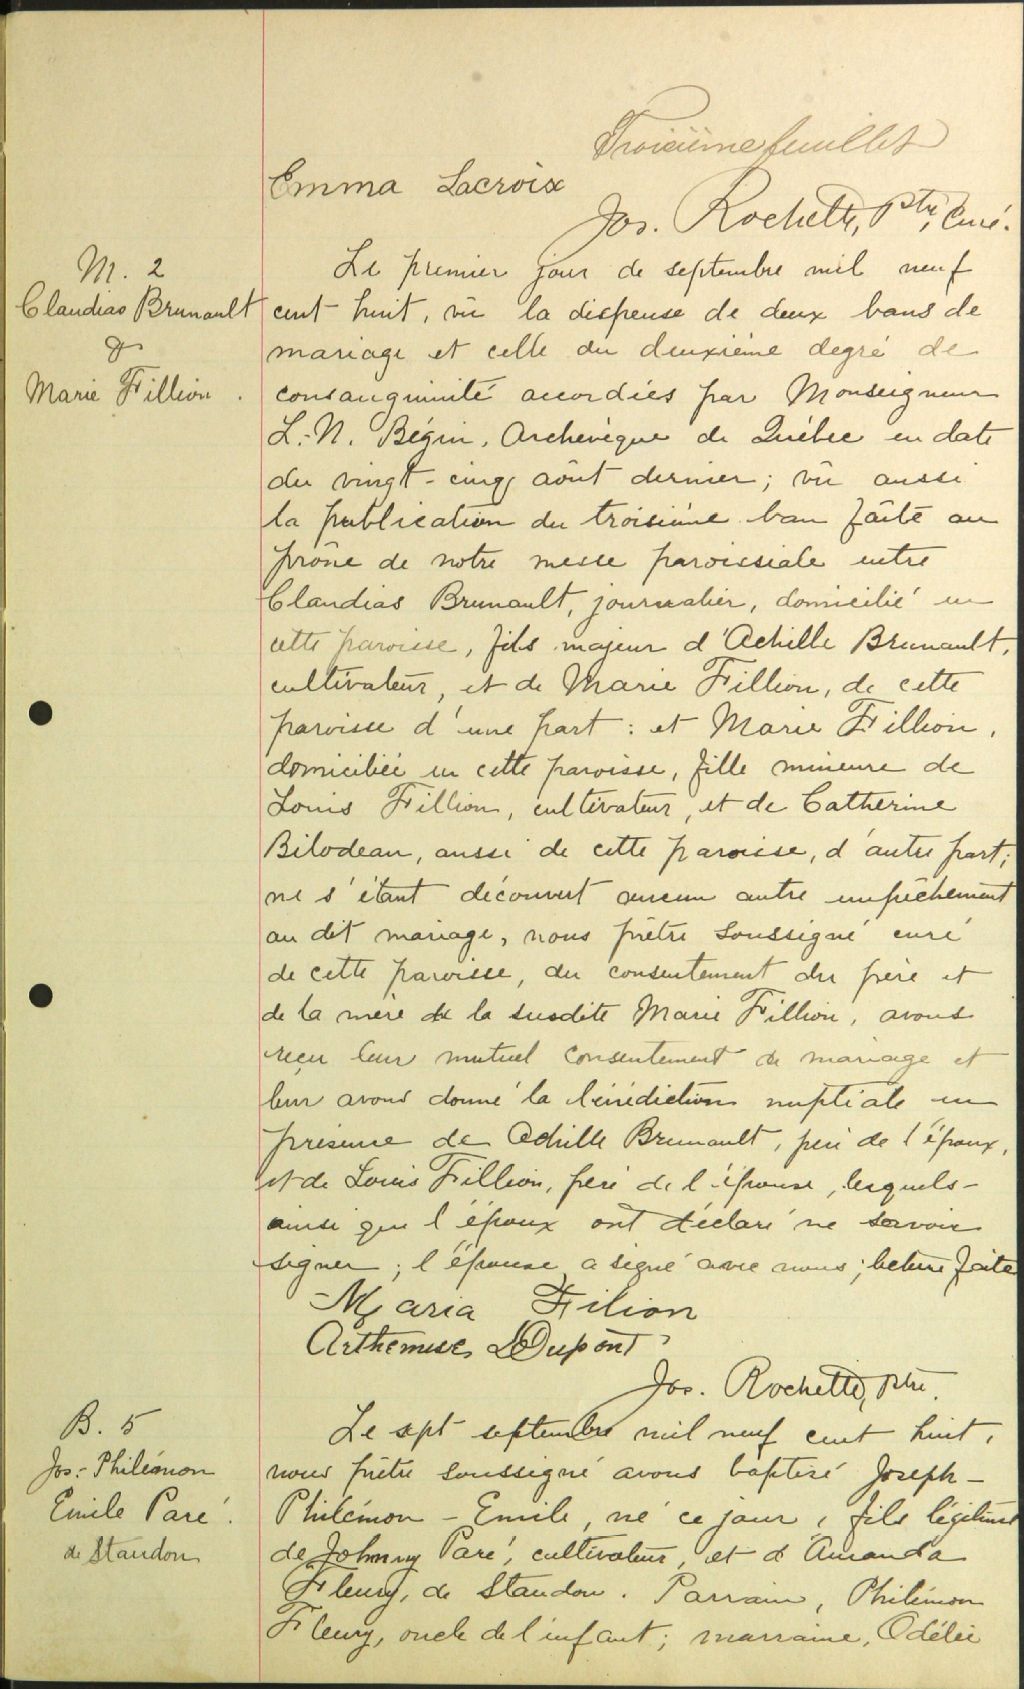 Troisième feuillet
Emma Lacroix
Jos. Rochette, Ptre, Curé.
M. 2
Claudias Brunault
&
Marie Fillion.
Le premier jour de septembre mil neuf
cent huit, vû la dispense de deux bans de
mariage et celle du deuxième degré de
consanguinité accordées par Monseigneur
L.-N. Bégin, Archevêque de Québec en date
du vingt-cinq août dernier; vû aussi
la publication du troisième ban faite au
prône de notre messe paroissiale entre
Claudias Brunault, journalier, domicilié en
cette paroisse, fils majeur d'Achille Brunault,
cultivateur, et de Marie Fillion, de cette
paroisse d'une part: et Marie Fillion,
domiciliée en cette paroisse, fille mineure de
Louis Fillion, cultivateur, et de Catherine
Bilodeau, aussi de cette paroisse, d'autre part;
ne s'étant découvert aucun autre empêchement
au dit mariage, nous prêtre soussigné curé
de cette paroisse, du consentement du père et
de la mère de la susdite Marie Fillion, avons
reçu leur mutuel consentement de mariage et
leur avons donné la bénédiction nuptiale en
présence de Achille Brunault, père de l'époux,
et de Louis Fillion, père de l'épouse, lesquels-
ainsi que l'époux ont déclaré ne savoir
signer; l'épouse a signé avec nous; lecture faite
Maria Filion
Arthemise Dupont
Jos. Rochette, Ptre.
B. 5
Jos.-Philémon
Emile Paré.
de Standon
Le sept septembre mil neuf cent huit,
nous prêtre soussigné avons baptisé Joseph-
Philémon-Emile, né ce jour, fils légitime
de Johnny Paré, cultivateur, et d'Amanda
Fleury, de Standon. Parrain, Philémon
Fleury, oncle de l'enfant; marraine, Odélie